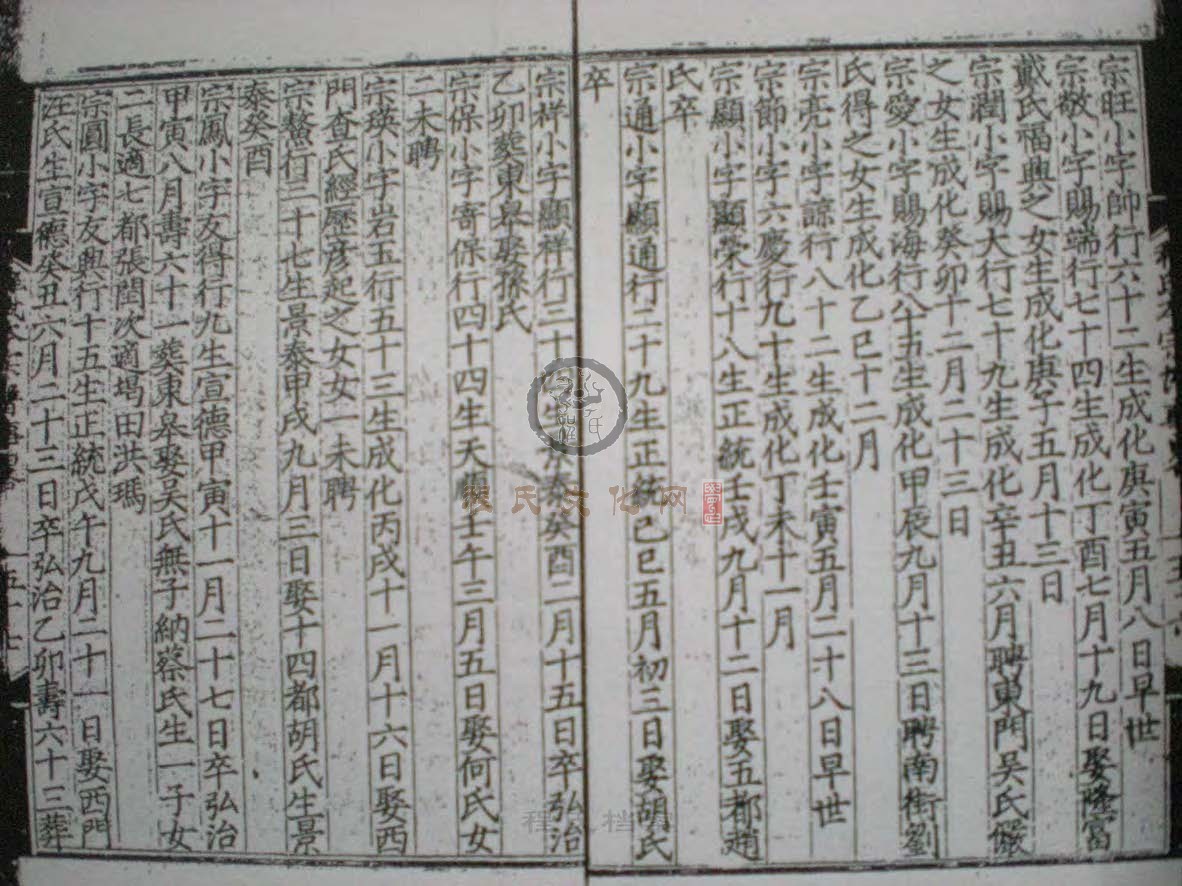 宗旺小字帥行六十二生成化庚寅五月八日早世
宗敬小字賜端行七十四生成化丁酉七月十九日娶隆富
戴氏福興之女生成化庚子五月十三日
宗潤小字賜大行七十九生成化辛丑六月聘東門吳氏儼
之女生成化癸卯十二月二十三日
宗愛小字賜海行八十五生成化甲辰九月十三日聘南街劉
氏得之女生成化乙巳十二月
宗亮小字諒行八十二生成化壬寅五月二十八日早世
宗節小字六慶行九十生成化丁未十一月
宗顯小字顯榮行十八生正統壬戌九月十二日娶五都趙
氏卒
宗通小字顯通行二十九生正統己巳五月初三日娶胡氏
卒
宗祥小字顯祥行三十生景泰癸酉二月十五日卒弘治
乙卯葬東皋娶孫氏
宗保小字寄保行四十四生天順壬午三月五日娶何氏女
二未聘
宗瑛小字岩玉行五十三生成化丙戌十一月十六日娶西
門查氏經歷彥起之女女一未聘
宗鰲行三十七生景泰甲戌九月三日娶十四都胡氏生景
泰癸酉
宗鳳小字友得行九生宣德甲寅十一月二十七日卒弘治
甲寅八月壽六十一葬東皋娶吳氏無子納蔡氏生一子女
二長適七都張閏次適堨田洪瑪
宗圓小字友與行十五生正統戊午九月二十一日娶西門
汪氏生宣德癸丑六月二十三日卒弘治乙卯壽六十三葬
程氏文化网